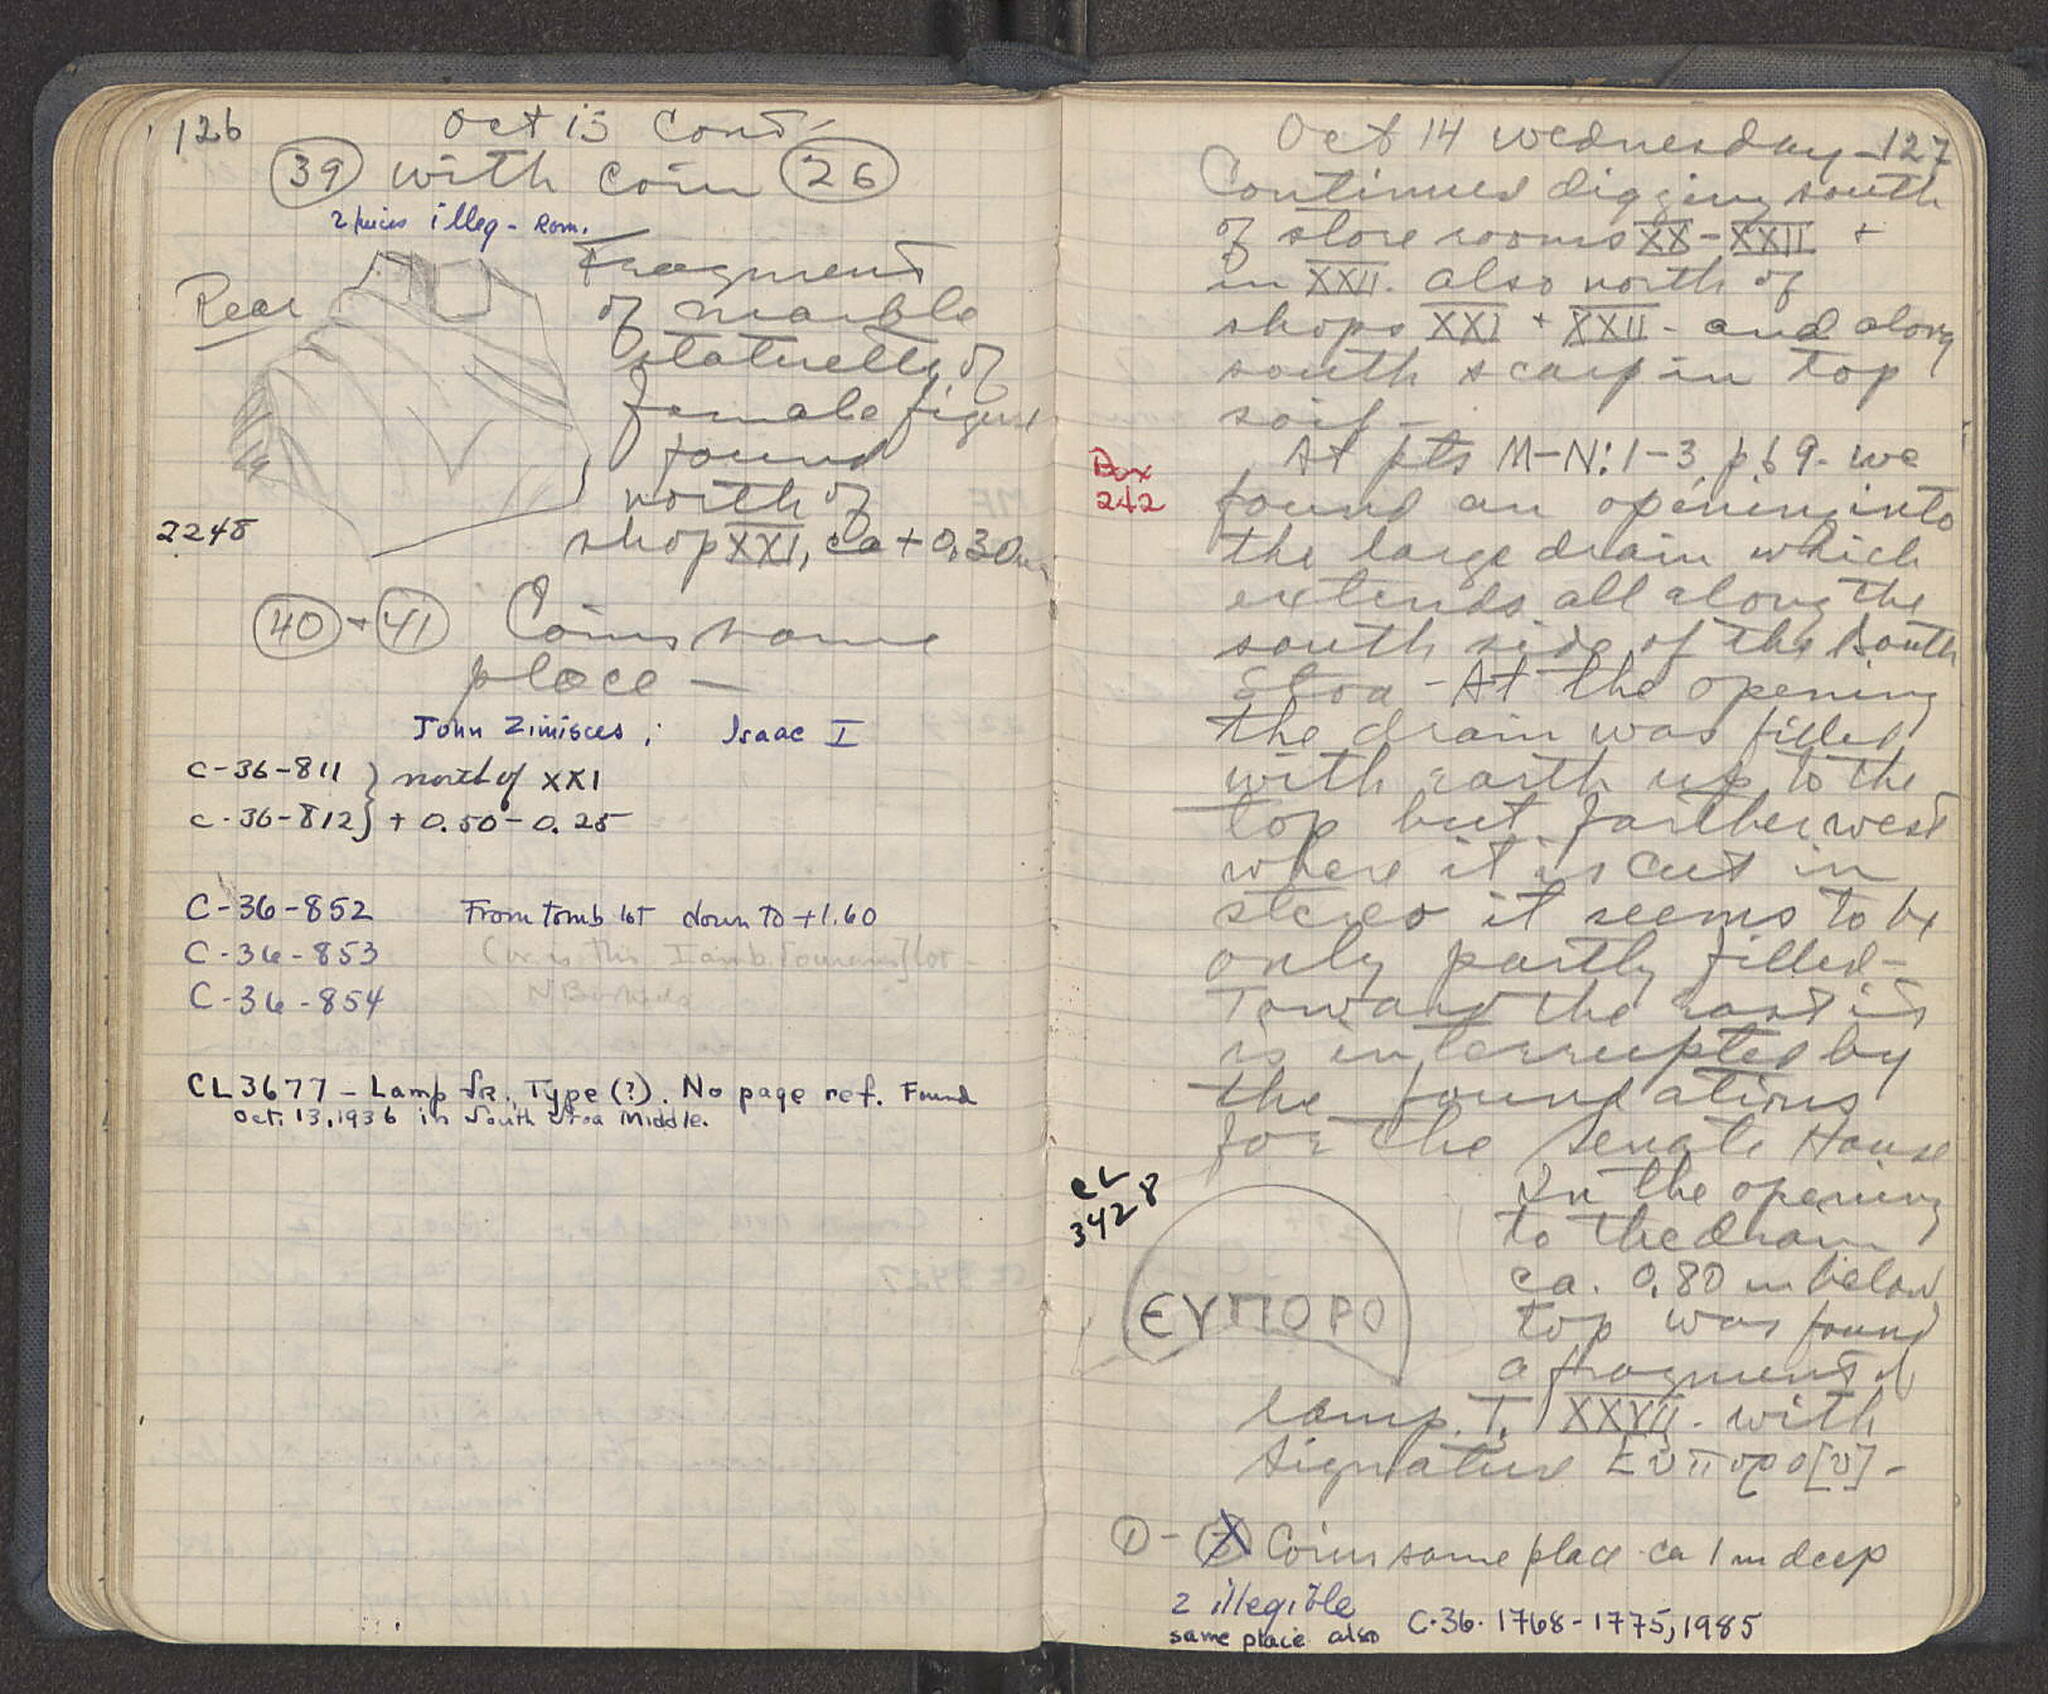 126
Oct 13 Cont-
39 with coin 26
2 pieces illeg - Rom.
Rear
Fragment
of marble
statuette of
female figure
found
north of
shop XXI, ca + 0.30m
2248
40 + 41 Coins same
place —
John Zimisces ; Isaac I
C-36-811 } north of XXI
C-36-812 } + 0.50 - 0.25
C-36-852 From tomb lot down to +1.60
C-36-853 (or is this
C-36-854
CL3677 - Lamp fr., Type (?). No page ref. Found
Oct. 13, 1936 in South Stoa Middle.
Oct 14 Wednesday - 127
Continued digging south
of store rooms XX - XXII +
in XXII. also north of
shops XXI + XXII - and along
south scarp in top
soil -
Box
242
At pts M-N:1-3 p 69. we
found an opening into
the large drain which
extends all along the
south side of the South
Stoa - At the opening
the drain was filled
with earth up to the
top but farther west
where it is cut in
stereo it seems to be
only partly filled -
Toward the east it
is interrupted by
the foundations
for the Senate House
CL
3428
In the opening
to the drain
ca. 0.80 m below
top was found
a fragment of
ΕΥΠΟΡΟ
lamp T. XXVII. with
signature Εὐπόρο[υ] -
1 - Coins same place ca 1 m deep
2 illegible
same place also C-36-1768-1775, 1985